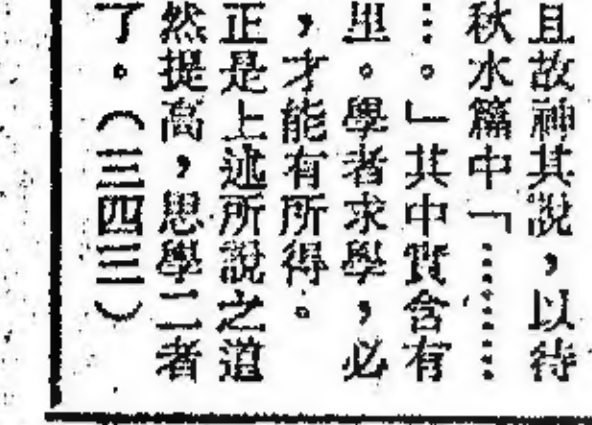 且故神其說，以待
秋水篇中「………
…。」其中實含有
里。學者求學，必
，才能有所得。
正是上述所說之道
然提高，思學二者
了。（三四三）